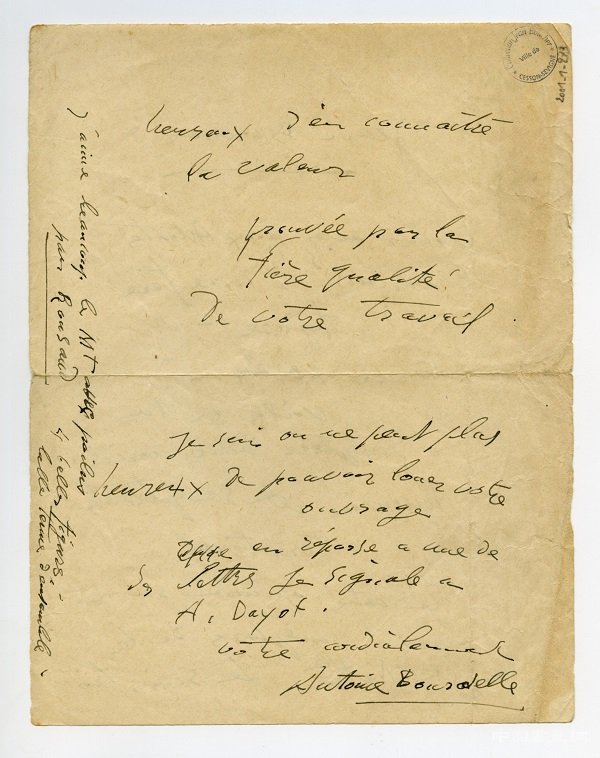 heureux d'en connaître
la valeur
prouvée par la
fière qualité
de votre travail
je suis on ne peut plus
heureux de pouvoir louer votre
ouvrage
en réponse a une de
ses lettres je signale a
A. Dayot.
votre cordialement
Antoine Bourdelle
J'aime beaucoup le Mt aux poilus
pour Ronsard 4 belles figures.
belle tenue d'ensemble.
Ville de
CESSON-SEVIGNE
2001-1-277